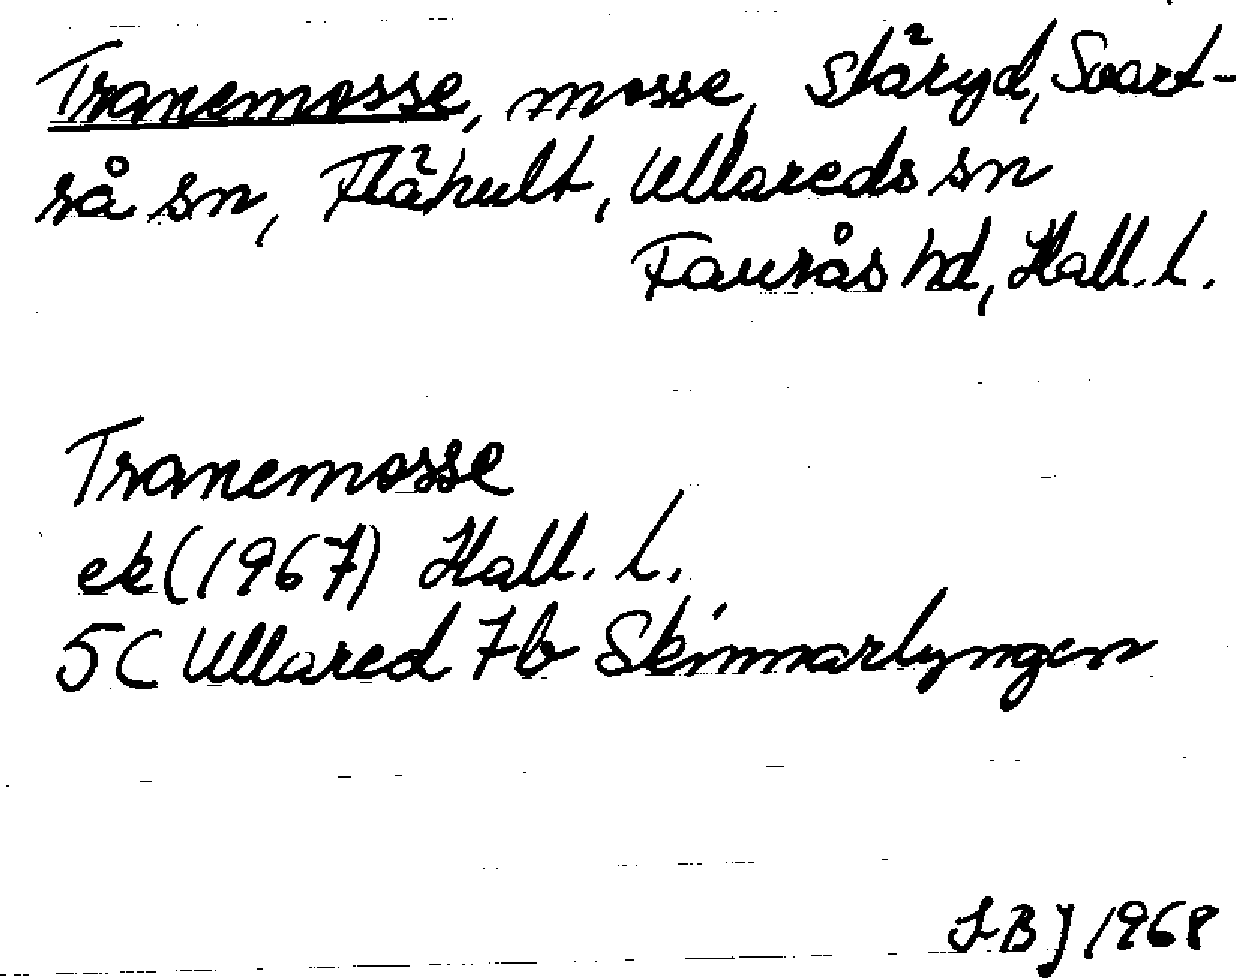 Tranemosse, mosse, Stäryd, Svart-
rå sn, Flähult, Ullareds sn
Faurås hd, Hall. l.
Tranemosse
ek (1967) Hall. l.
5C Ullared 7b Skinnarlyngen
LBJ 1968